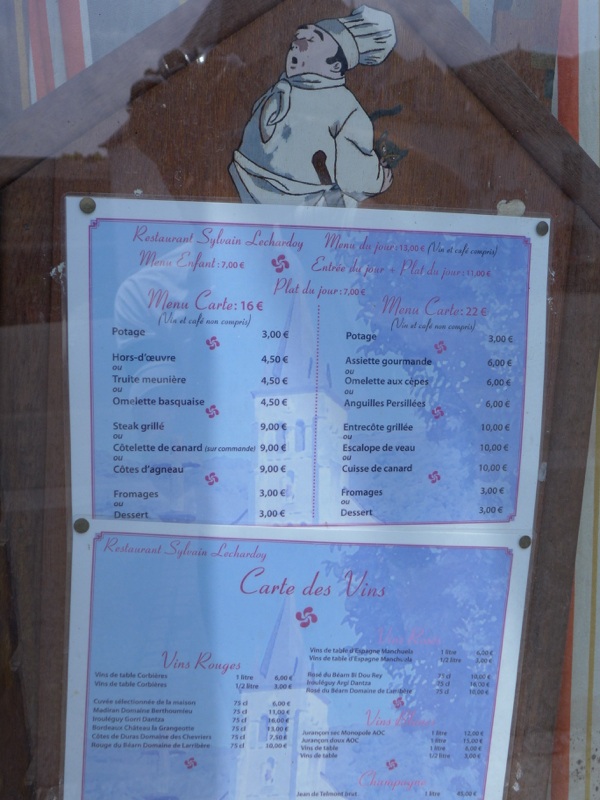 Restaurant Sylvain Lechardoy
Menu du jour : 13,00 € (Vin et café compris)
Menu Enfant : 7,00 €
Entrée du jour + Plat du jour : 11,00 €
Plat du jour : 7,00 €
Menu Carte : 16 €
(Vin et café non compris)
Potage 3,00 €
Hors-d'œuvre 4,50 €
ou
Truite meunière 4,50 €
ou
Omelette basquaise 4,50 €
Steak grillé 9,00 €
ou
Côtelette de canard (sur commande) 9,00 €
ou
Côtes d'agneau 9,00 €
Fromages 3,00 €
ou
Dessert 3,00 €
Menu Carte : 22 €
(Vin et café non compris)
Potage 3,00 €
Assiette gourmande 6,00 €
ou
Omelette aux cèpes 6,00 €
ou
Anguilles Persillées 6,00 €
Entrecôte grillée 10,00 €
ou
Escalope de veau 10,00 €
ou
Cuisse de canard 10,00 €
Fromages 3,00 €
ou
Dessert 3,00 €
Restaurant Sylvain Lechardoy
Carte des Vins
Vins Rouges
Vins de table Corbières 1 litre 6,00 €
Vins de table Corbières 1/2 litre 3,00 €
Cuvée sélectionnée de la maison 75 cl 6,00 €
Madiran Domaine Berthoumieu 75 cl 11,00 €
Irouléguy Gorri Dantza 75 cl 16,00 €
Bordeaux Château la Grangeotte 75 cl 13,00 €
Côtes de Duras Domaine des Cheviers 75 cl 7,50 €
Rouge du Béarn Domaine de Larribère 75 cl 10,00 €
Vins
Vins de table d'Espagne 1 litre 6,00 €
Vins de table d'Espagne 1/2 litre 3,00 €
Rosé du Béarn Bi Dou Rey 75 cl 10,00 €
Irouléguy Argi Dantza 75 cl 16,00 €
Rosé du Béarn Domaine de Larribère 75 cl 10,00 €
Vins
Jurançon sec Monopole AOC 1 litre 12,00 €
Jurançon doux AOC 1 litre 13,00 €
Vins de table 1 litre 6,00 €
Vins de table 1/2 litre 3,00 €
Champagne
Jean de Telmont brut 1 litre